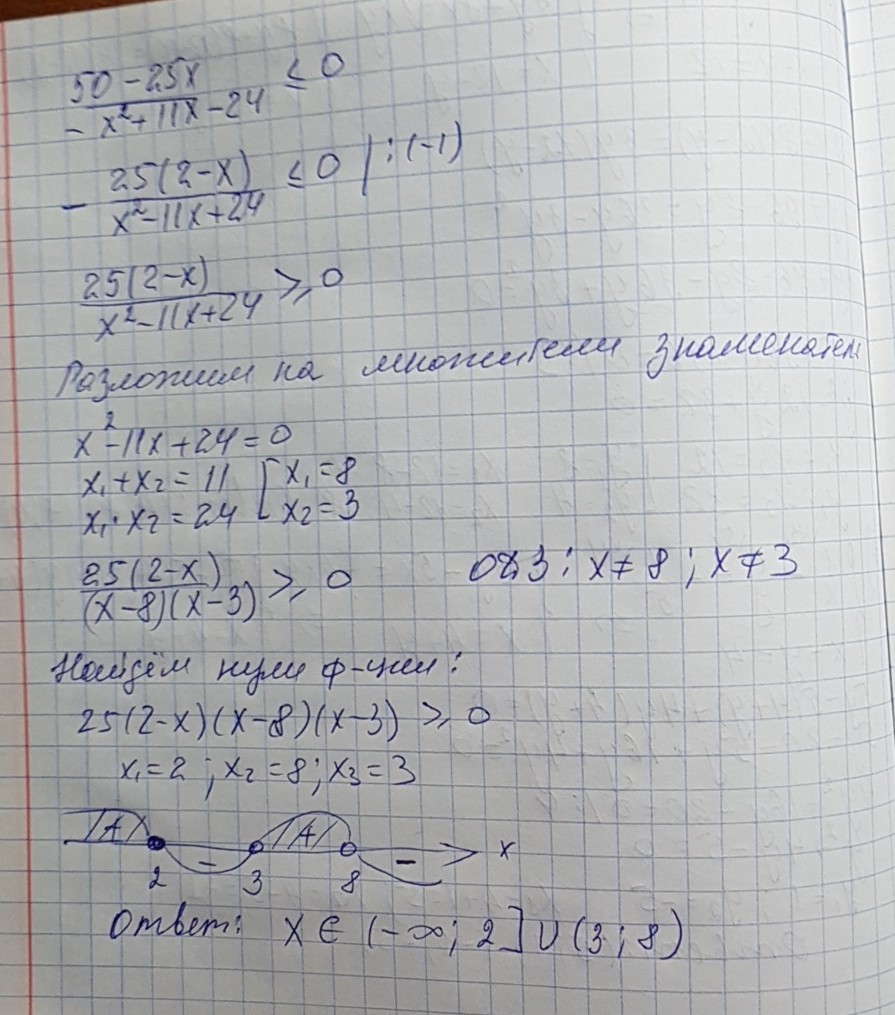 50 - 25x / -x²+11x-24 ≤ 0
- 25(2-x) / x²-11x+24 ≤ 0 | :(-1)
25(2-x) / x²-11x+24 ≥ 0
Разложим на множители знаменатель
x²-11x+24=0
x₁+x₂=11 [ x₁=8
x₁·x₂=24 [ x₂=3
25(2-x) / (x-8)(x-3) ≥ 0 ОДЗ: x≠8; x≠3
Найдём нули ф-ции:
25(2-x)(x-8)(x-3) ≥ 0
x₁=2; x₂=8; x₃=3
+ - + - x
2 3 8
Ответ: x ∈ (-∞; 2] ∪ (3; 8)